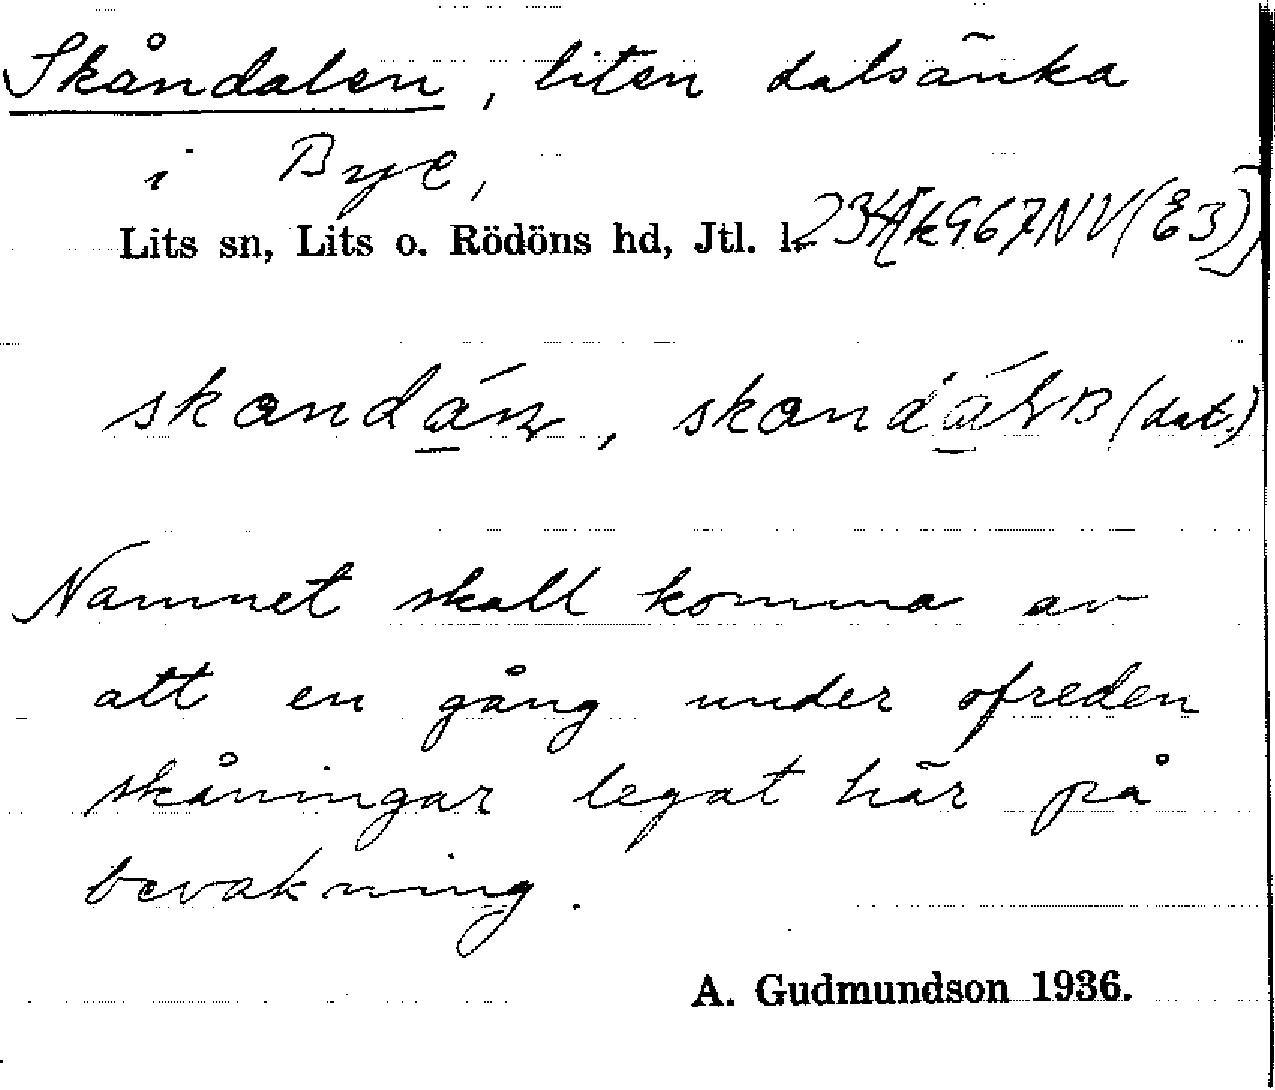 Skåndalen, liten dalsänka
i Bye,
Lits sn, Lits o. Rödöns hd, Jtl. l.
Namnet skall komma av
att en gång under ofreden
skåningar legat här på
bevakning.
A. Gudmundson 1936.